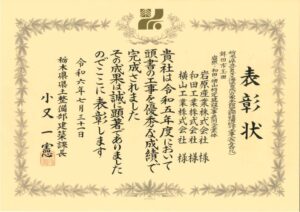 表彰状
岩原産業株式会社 様
和田工業株式会社 様
横山工業株式会社 様
貴社は令和五年度において
頭書の工事を優秀な成績で
完成されました
その成果は誠に顕著でありました
のでここに表彰します
令和六年七月三十一日
栃木県県土整備部建築課長
小又 一憲